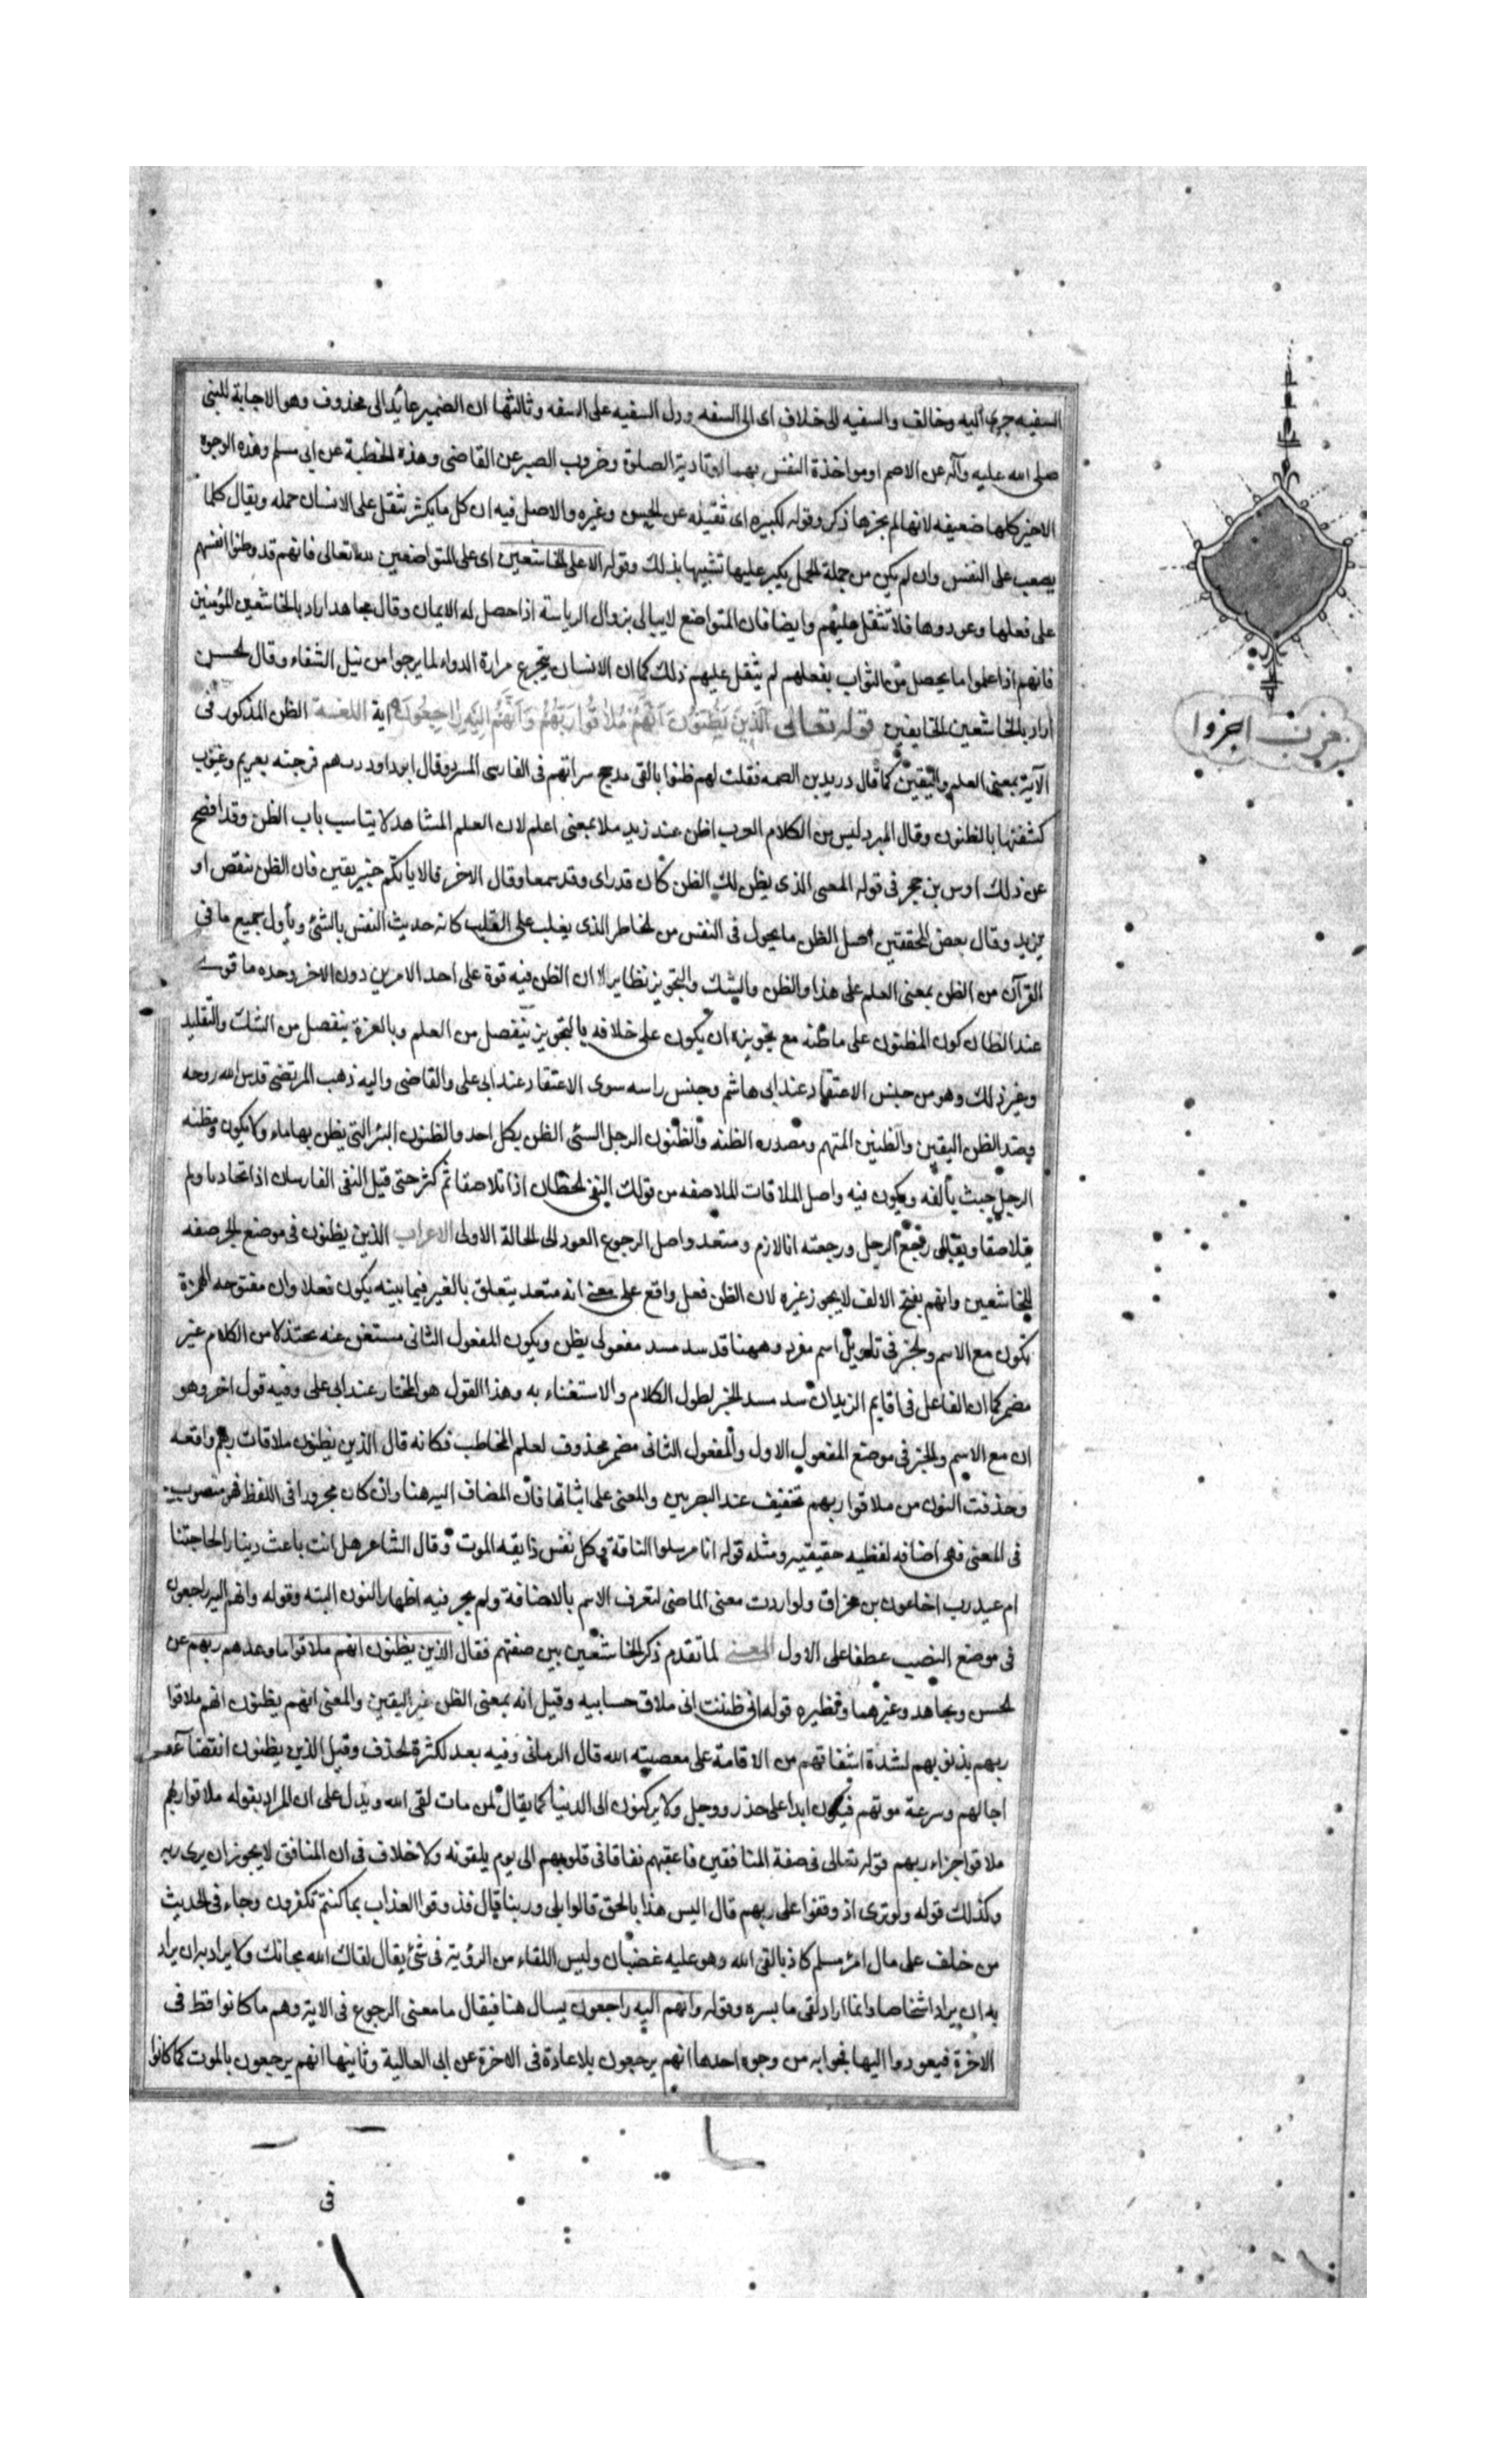 السفيه جرى اليه وخالف والسفيه الى خلاف اى الى السفه ودل السفيه على السفه وثالثها ان الضمير عايد الى محذوف وهو الاجابة للنبى
صلى الله عليه وآله عن الاصم او مواخذة النفس بهما او تادية الصلوة وضروب الصبر عن القاضى وهذه الخطبة عن ابى مسلم وهذه الوجوه
الاخير كلها ضعيفه لانها لم يجز لها ذكر وقوله لكبيره اى ثقيله عن الحسن وغيره والاصل فيه ان كل ما يكثر يثقل على الانسان حمله ويقال كلما
يصعب على النفس وان لم يكن من جملة الحمل يكبر عليها تشبيها بذلك وقوله الا على الخاشعين اى على المتواضعين لله تعالى فانهم قد وطنوا انفسهم
على فعلها وعودوها فلا تثقل عليهم وايضا فان المتواضع لا يبالى بزوال الرياسة اذا حصل له الايمان وقال مجاهد اراد بالخاشعين المؤمنين
فانهم اذا علموا ما يحصل من الثواب بفعلهم لم يثقل عليهم ذلك كما ان الانسان يتجرع مرارة الدواء لما يرجوا من نيل الشفاء وقال الحسن
اراد بالخاشعين الخايفين قوله تعالى الَّذِينَ يَظُنُّونَ اَنَّهُمْ مُلاقُوا رَبِّهِمْ وَاَنَّهُمْ اِلَيْهِ رَاجِعُونَ اية اللغسة الظن المذكور فى
الآية بمعنى العلم واليقين كما قال دريد بن الصمه فقلت لهم ظنوا بالفى مدجج سراتهم فى الفارسى المسرد وقال ابو داود رب هم فرجته بعريم وغيوب
كشفتها بالظنون وقال المبرد ليس من الكلام العرب اظن عند زيد ملا بمعنى اعلم لان العلم المشاهد لا يناسب باب الظن وقد افصح
عن ذلك اوس بن حجر فى قوله المعى الذى يظن لك الظن كان قد راى وقد سمعا وقال الاخر فالا ياتكم خبر يقين فان الظن ينقص او
يزيد وقال بعض المحققين اصل الظن ما يحول فى النفس من الخاطر الذى يغلب على القلب كانه حديث النفس بالشئ وياول جميع ما فى
القرآن من الظن بمعنى العلم على هذا والظن والشك والتجويز نظاير الا ان الظن فيه قوة على احد الامرين دون الاخر وحده ما قوى
عند الظان كون المظنون على ما ظنه مع تجويزه ان يكون على خلافه بالتجويز ينفصل من العلم وبالعزة ينفصل من الشك والتقليد
وغير ذلك وهو من جنس الاعتقاد عند ابى هاشم وجنس راسه سوى الاعتقاد عند ابى على والقاضى واليه ذهب المرتضى قدس الله روحه
وضد الظن اليقين والظنين المتهم ومصدره الظنه والظنون الرجل السئ الظن بكل احد والظنون البئر التى يظن بها ماء ولا يكون ومظنه
الرجل حيث يألفه ويكون فيه واصل الملاقات الملاصقه من قولك التقى الخطان اذا تلاصقا ثم كثر حتى قيل التقى الفارسان اذا تحاديا ولم
يتلاصقا ويقال رجع الرجل ورجعته انا لازم ومتعد واصل الرجوع العود الى الحالة الاولى الاعراب الذين يظنون فى موضع الجر صفه
للخاشعين وانهم بفتح الالف لا يجوز غيره لان الظن فعل واقع على معنى انه متعد يتعلق بالغير فيما بينه يكون فعلا وان مفتوحه الهمزة
يكون مع الاسم والخبر فى تاويل اسم مفرد وههنا قد سد مسد مفعولى يظن ويكون المفعول الثانى مستغن عنه مختذلا من الكلام غير
مضمر كما ان الفاعل فى اقايم الزيدان سد مسد الخبر لطول الكلام والاستغناء به وهذا القول هو المختار عند ابى على وفيه قول اخر وهو
ان مع الاسم والخبر فى موضع المفعول الاول والمفعول الثانى مضمر محذوف لعلم المخاطب فكانه قال الذين يظنون ملاقات ربهم واقعه
وحذفت النون من ملاقوا ربهم تخفيف عند البصريين والمعنى على اثباتها فان المضاف اليه هنا وان كان مجرورا فى اللفظ فهو منصوب
فى المعنى فهى اضافه لفظيه حقيقيه ومثله قوله انا مرسلوا الناقة وكل نفس ذايقه الموت وقال الشاعر هل انت باعث دينار لحاجتنا
ام عبد رب اخا عون بن مخراق ولو اردت معنى الماضى لتعرف الاسم بالاضافة ولم يجز فيه اظهار النون البته وقوله وانهم اليه راجعون
فى موضع النصب عطفا على الاول المعنى لما تقدم ذكر الخاشعين بين صفتهم فقال الذين يظنون انهم ملاقوا ما وعدهم ربهم عن
الحسن ومجاهد وغيرهما ونظيره قوله انى ظننت انى ملاق حسابيه وقيل انه بمعنى الظن غير اليقين والمعنى انهم يظنون انهم ملاقوا
ربهم بذنوبهم لشدة اشفاقهم من الاقامة على معصيته الله قال الرمانى وفيه بعد لكثرة الحذف وقيل الذين يظنون انقضآء
اجالهم وسرعة موتهم فيكون ابدا على حذر ووجل ولا يركنون الى الدنيا كما يقال لمن مات لقى الله ويدل على ان المراد بقوله ملاقوا ربهم
ملاقوا جزاء ربهم قوله تعالى فى صفة المنافقين فاعقبهم نفاقا فى قلوبهم الى يوم يلقونه ولا خلاف فى ان المنافق لا يجوز ان يرى ربه
وكذلك قوله ولو ترى اذ وقفوا على ربهم قال اليس هذا بالحق قالوا بلى وربنا قال فذوقوا العذاب بما كنتم تكفرون وجاء فى الحديث
من خلف على مال امرئ مسلم كاذبا لقى الله وهو عليه غضبان وليس اللقاء من الرؤية فى شئ يقال لقاك الله محابك ولا يراد به ان يراد
به ان يراد اشخاصا وانما اراد لقى ما يسره وقوله وانهم اليه راجعون يسال هنا فيقال ما معنى الرجوع فى الاية وهم ما كانوا قط فى
الاخرة فيعودوا اليها فجوابه من وجوه احدها انهم يرجعون بالاعادة فى الاخرة عن ابى العالية وثانيها انهم يرجعون بالموت كما كانوا
فى